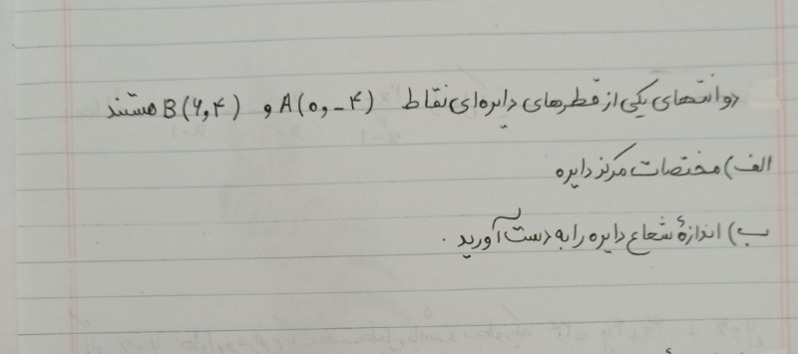 دو انتهای یکی از قطرهای دایره‌ای نقاط A(0,-۴) و B(۶,۴) هستند
الف) مختصات مرکز دایره
ب) اندازهٔ شعاع دایره را به دست آورید.